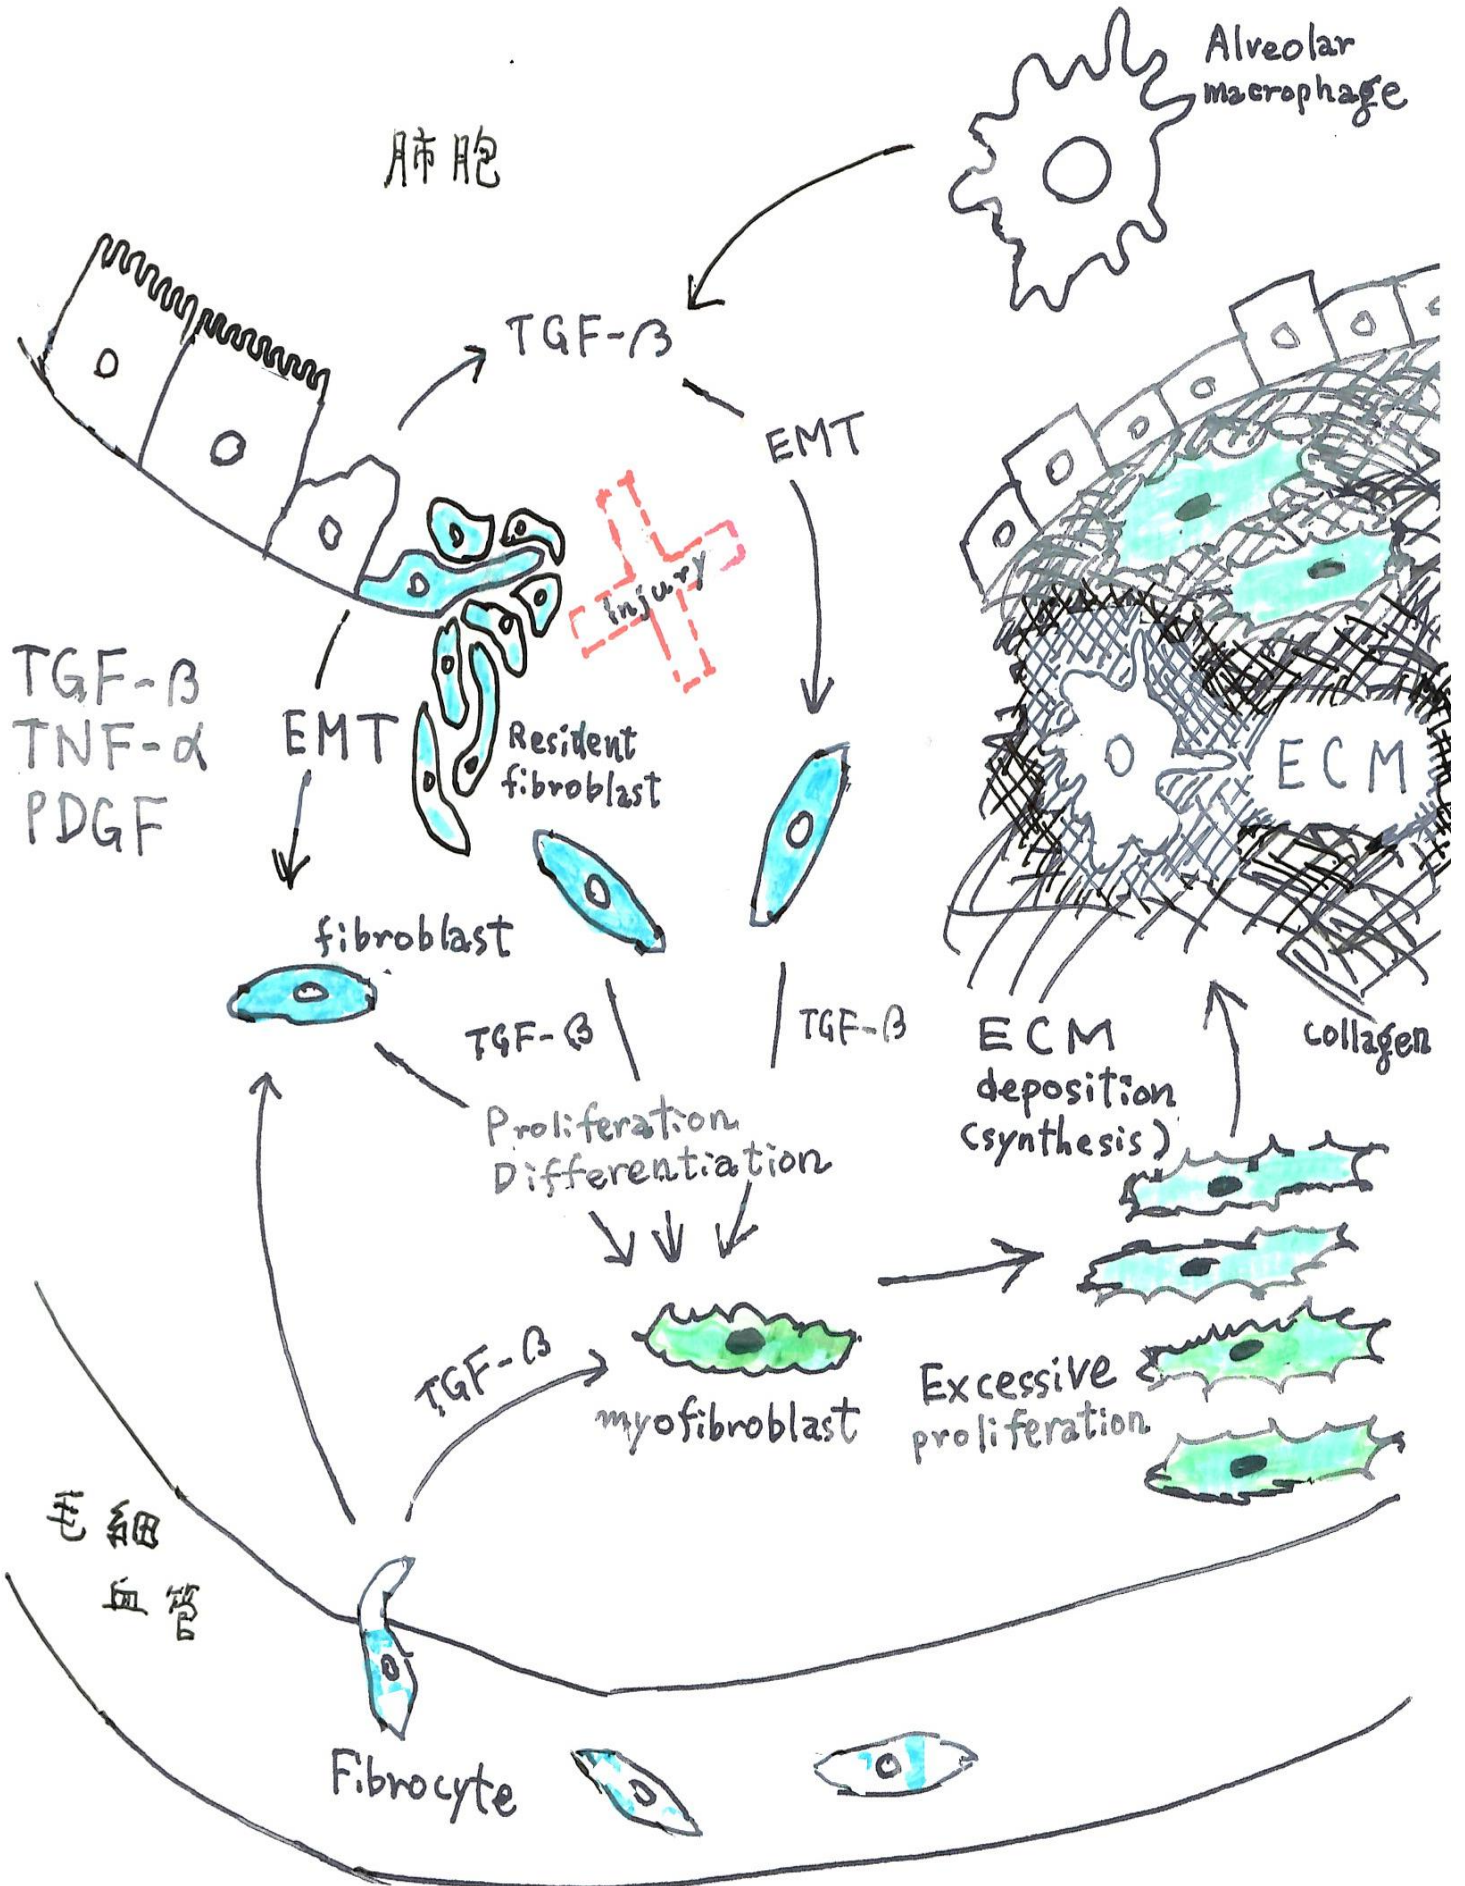 Alveolar
macrophage
肺胞
TGF-β
EMT
injury
TGF-β
TNF-α
PDGF
EMT
Resident
fibroblast
ECM
fibroblast
TGF-β
TGF-β
ECM
deposition
(synthesis)
collagen
Proliferation
Differentiation
TGF-β
myofibroblast
Excessive
proliferation
毛細
血管
Fibrocyte